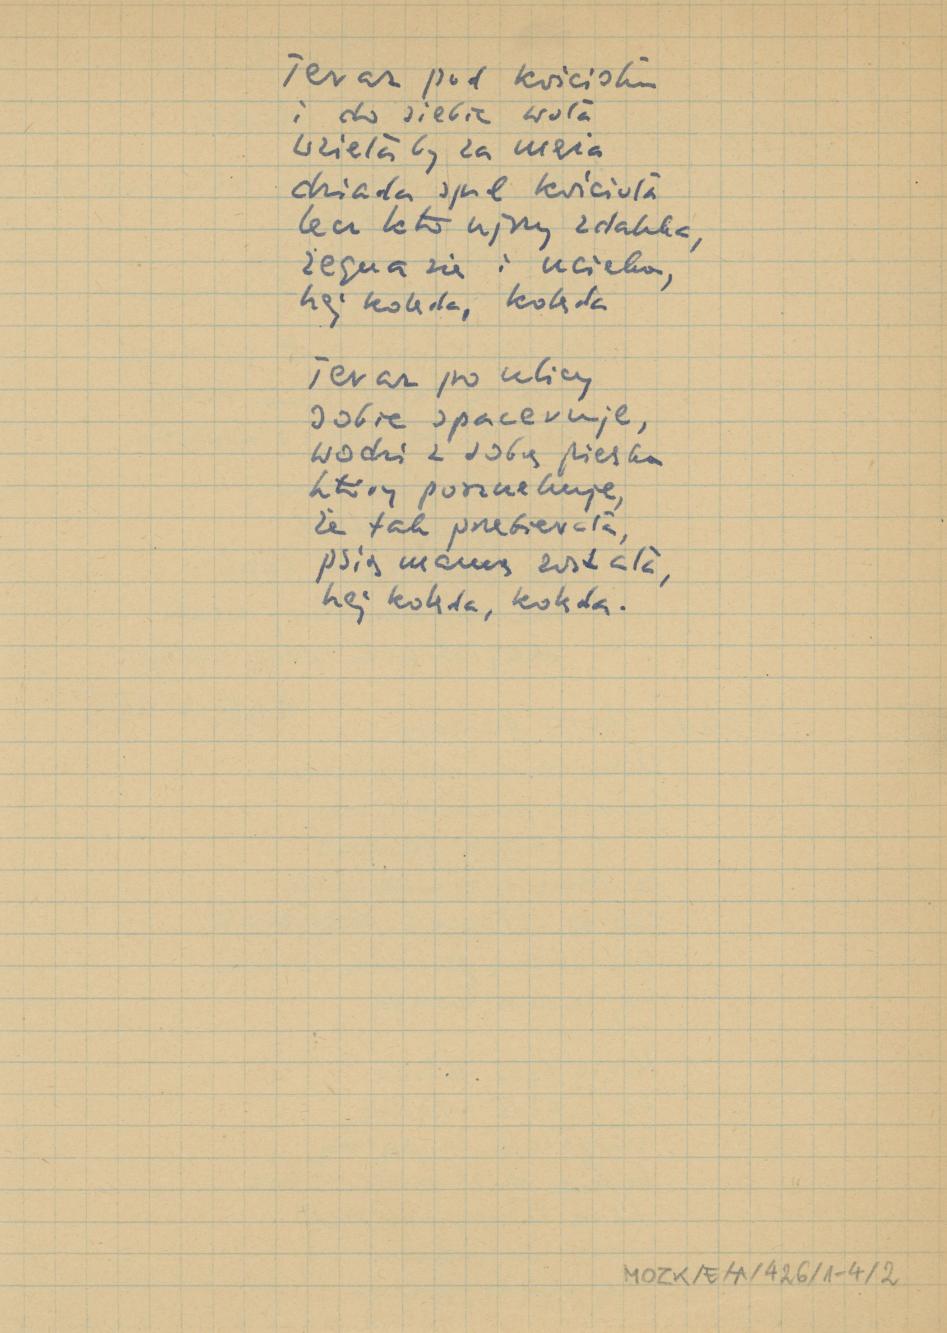 Teraz pod kościołem
i do siebie woła
wzięłaby za męża
dziada spod kościoła
lecz kto ujrzy zdaleka,
żegna się i ucieka,
hej kolęda, kolęda
Teraz po ulicy
sobie spaceruje,
wodzi z sobą pieska
który poszukuje,
że tak przebierała,
psią mamą została,
hej kolęda, kolęda.
MOZK/E/A/426/1-4/2